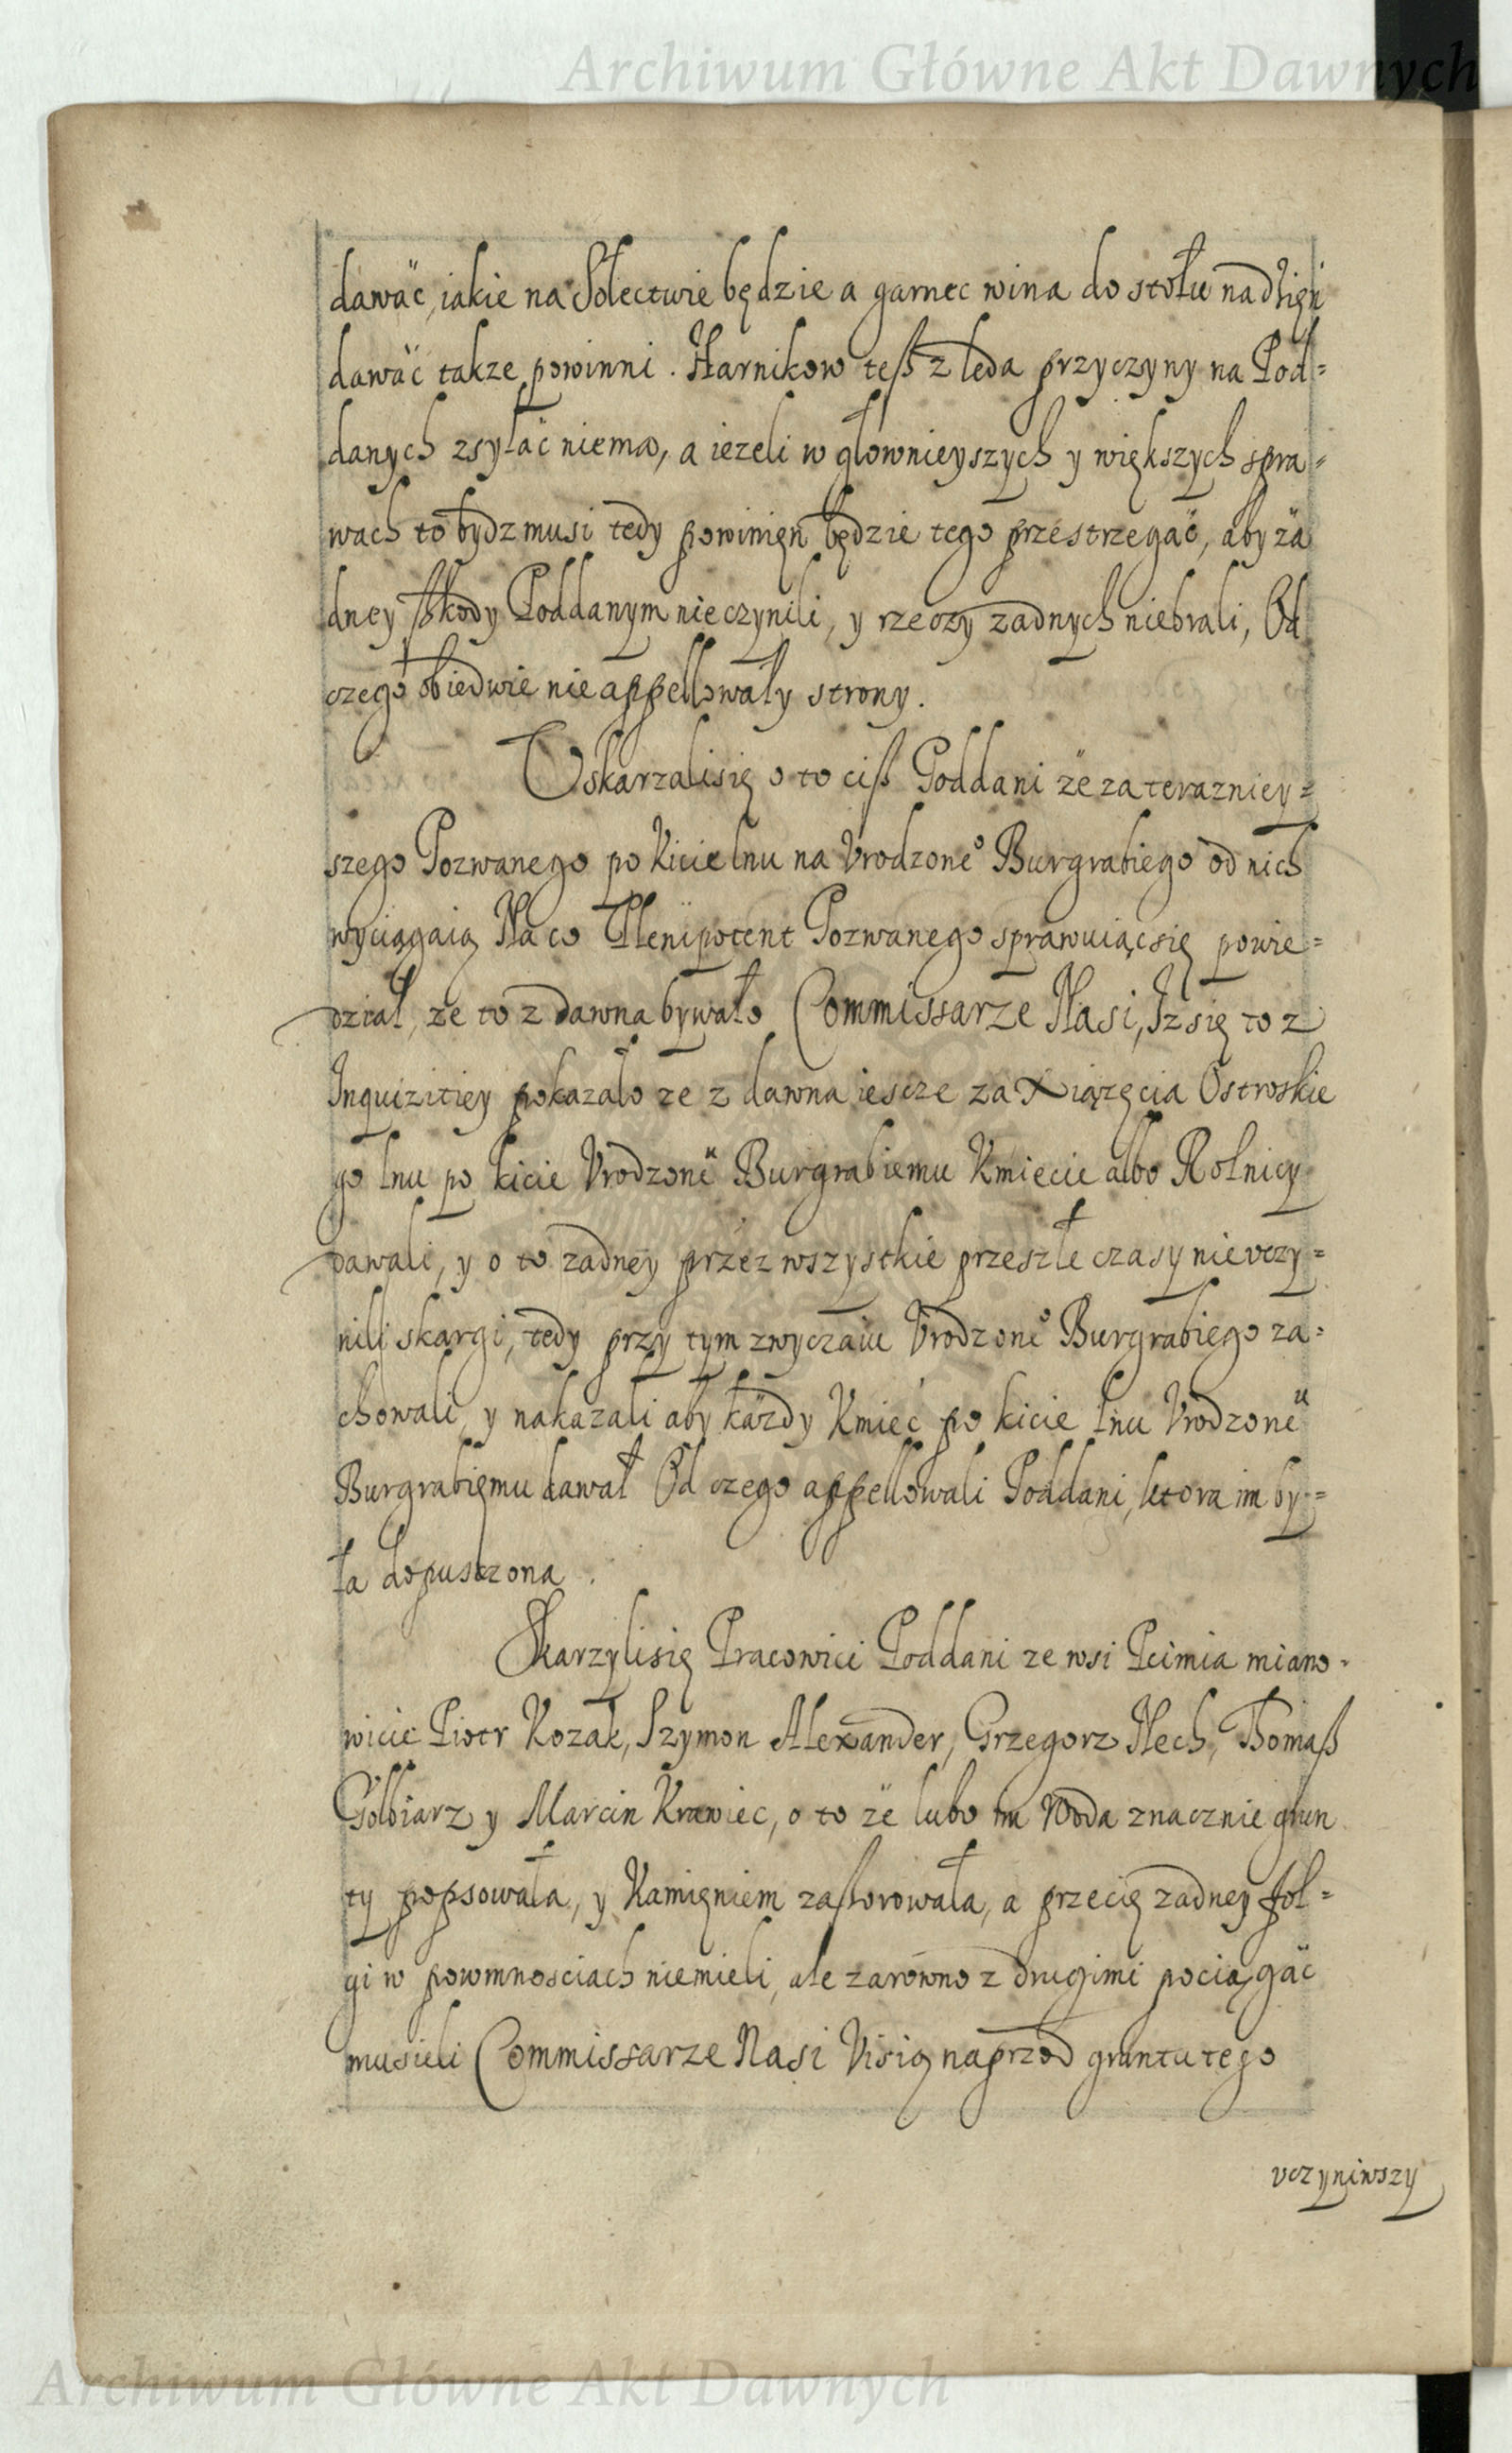 Archiwum Główne Akt Dawnych
dawać, iakie na Sołectwie będzie a garnec wina do stołu na dzięń
dawać takze powinni. Harnikow teß z leda przyczyny na Pod=
danych zsyłać niema, a iezeli w głownieyszych y większych spra=
wach to bydz musi tedy powinięn będzie tego przestrzegać, aby ża
dney ßkody Poddanym nie czynili, y rzeczy zadnych niebrali, Od
czego obiedwie nie appellowały strony.
Uskarzali się o to ciß Poddani że za terazniey=
szego Pozwanego po kicie lnu na Vrodzone° Burgrabiego od nich
wyciągaią Na co Plenipotent Pozwanego sprawuiąc się powie=
dział, ze to z dawna bywało Commissarze Nasi, Iz się to z
Inquizitiey pokazało ze z dawna iescze za Xiązęcia Ostroskie
go lnu po kicie Vrodzoneu Burgrabiemu Kmiecie albo Rolnicy
dawali, y o to zadney przez wszystkie przeszłe czasy nie vczy=
nili skargi, tedy przy tym zwyczaiu Vrodzone° Burgrabiego za=
chowali, y nakazali aby każdy Kmieć po kicie lnu Vrodzoneu
Burgrabięmu dawał Od czego appellowali Poddani, ktora im by=
ła dopusczona.
Skarzyli się Pracowici Poddani ze wsi Pcimia miano=
wicie Piotr Kozak, Szymon Alexander, Grzegorz Nech, Thomaß
Gołbiarz y Marcin Krawiec, o to że lubo im Woda znacznie grun
ty popsowała, y Kamięniem zastorowała, a przecię zadney fol=
gi w powinnosciach niemieli, ale zarowno z drugimi pociągać
musieli Commissarze Nasi Visią naprzod gruntu tego
vczyniwszy
Archiwum Główne Akt Dawnych